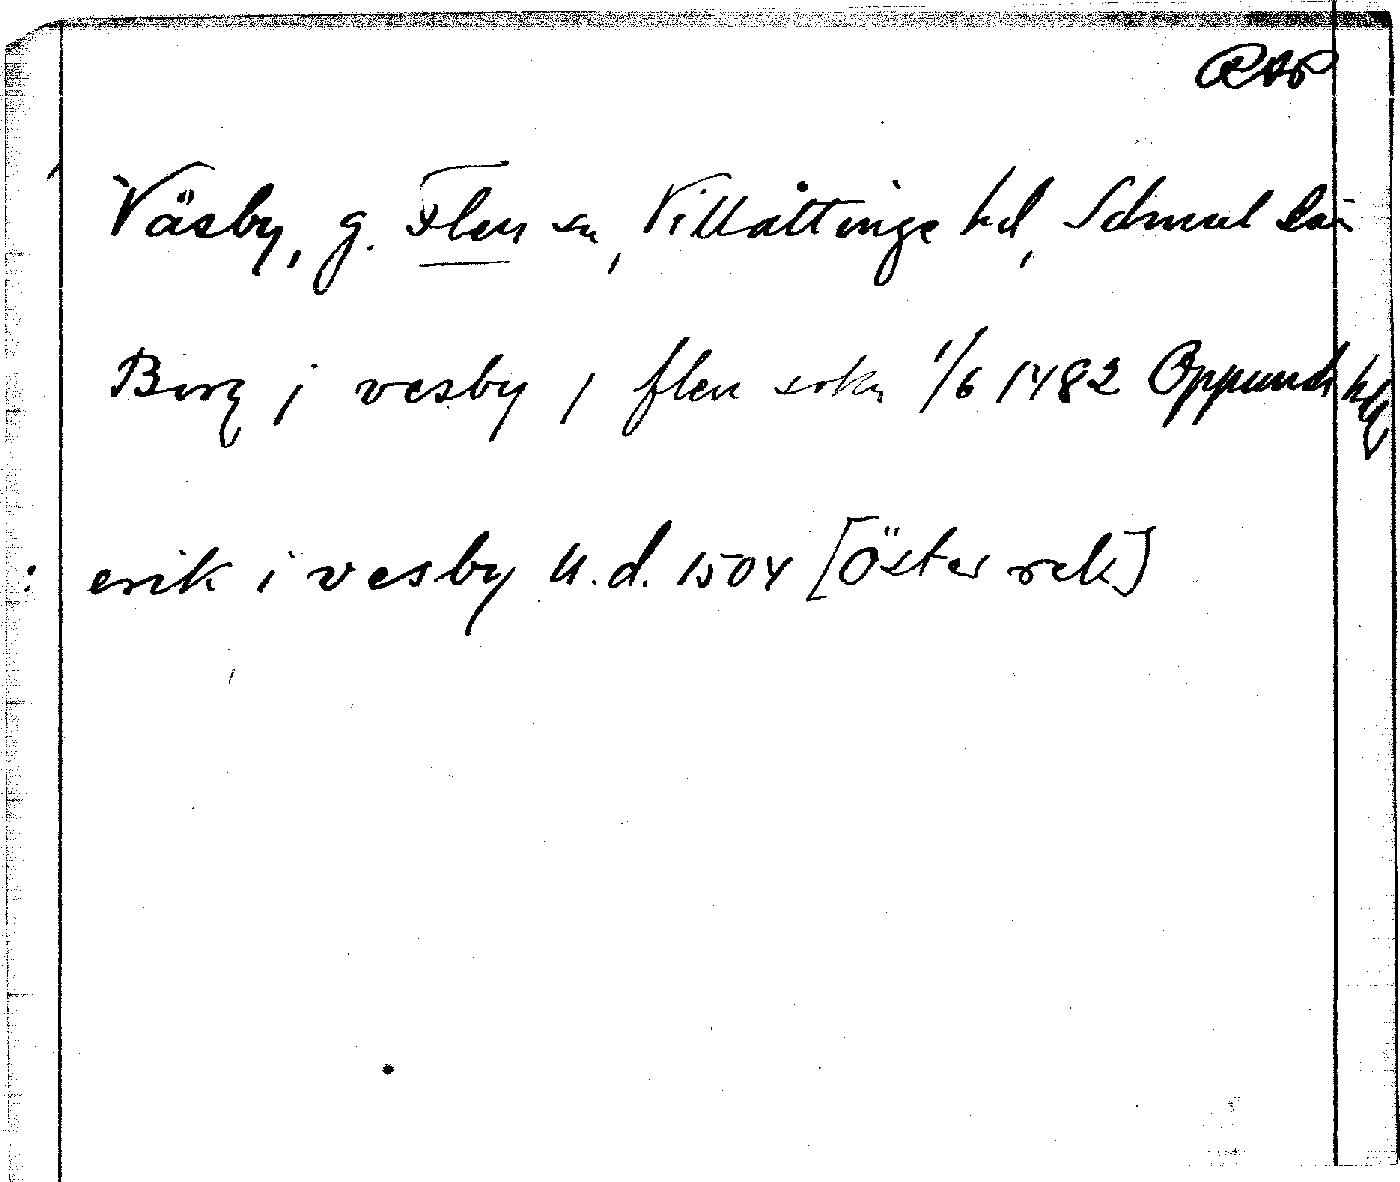 RAP
Väsby, g. Flen sn, Villåttinge hd, Sdmnl län
Borg j vesby j flen sokn 1/6 1482 Oppunda hd
: erik i vesby U.d. 1504 [Öster rek]